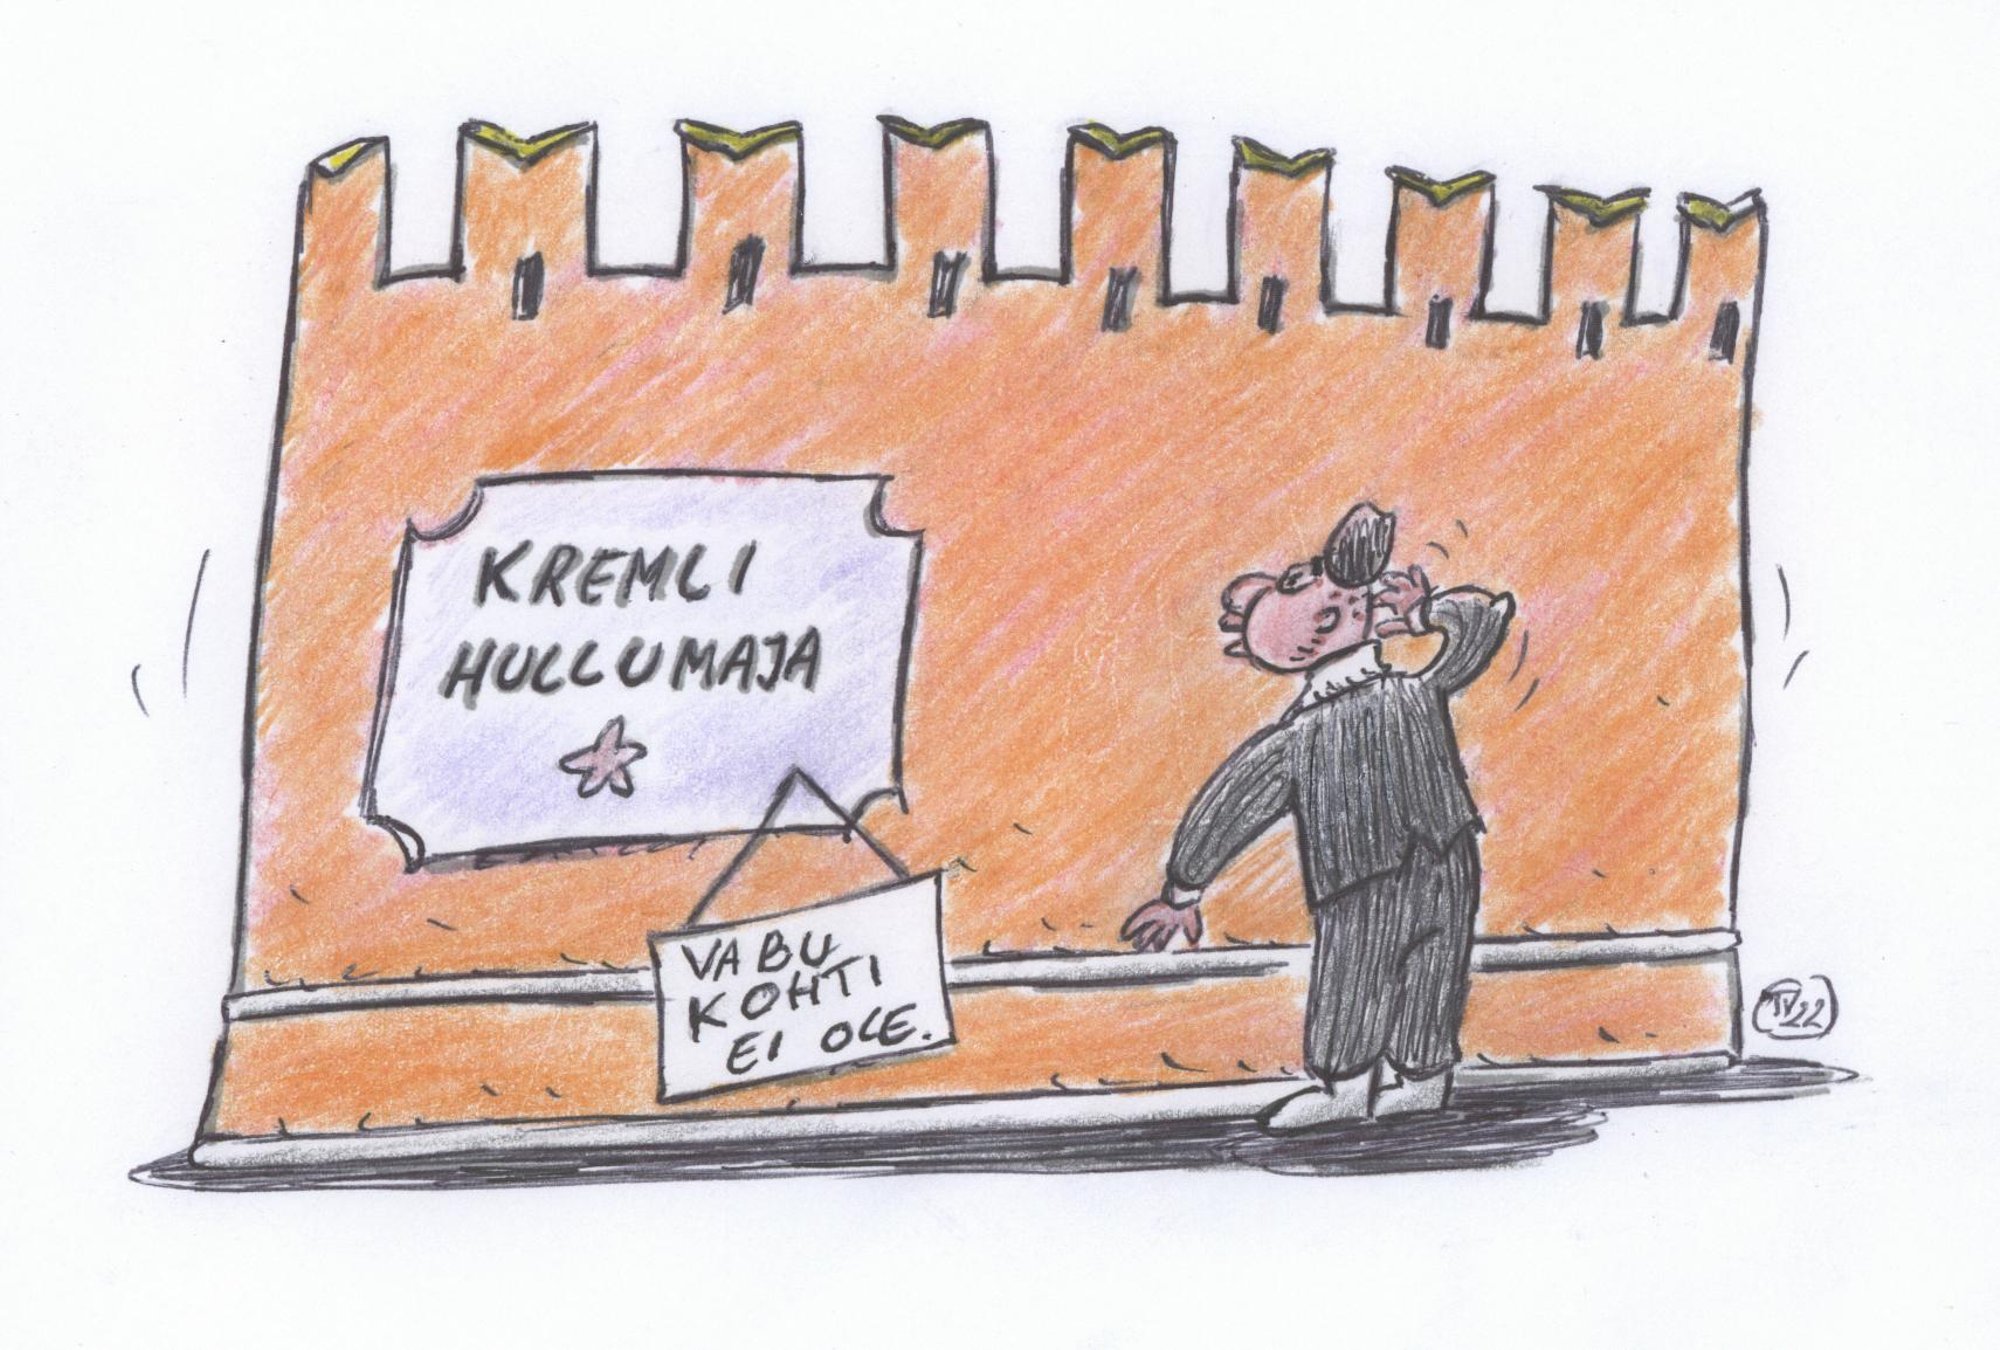 KREMLI
HULLUMAJA
VABU
KOHTI
EI OLE.
TV22